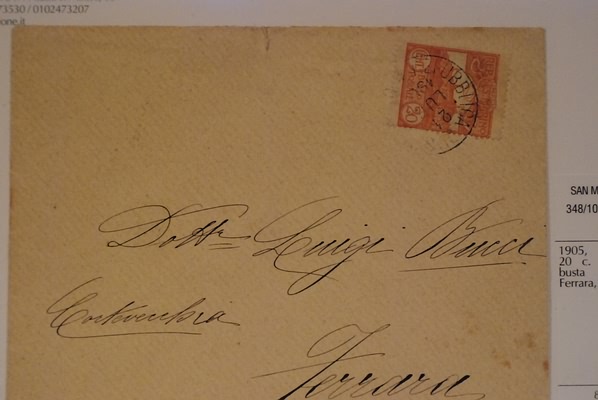 73530 / 0102473207
one.it
20
Dott. Luigi Bucci
Cortevecchia
Ferrara
SAN M
348/10
1905,
20 c.
busta
Ferrara,